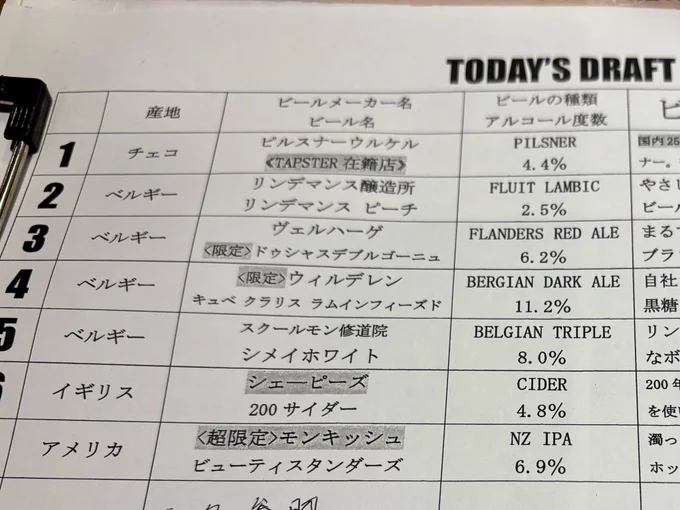 TODAY'S DRAFT
産地 ビールメーカー名 ビールの種類
ビール名 アルコール度数
1 チェコ ピルスナーウルケル PILSNER 国内25
<TAPSTER 在籍店> 4.4% ナー。
2 ベルギー リンデマンス醸造所 FLUIT LAMBIC やさし
リンデマンス ピーチ 2.5% ビール
3 ベルギー ヴェルハーゲ FLANDERS RED ALE まるで
<限定>ドゥシャスデブルゴーニュ 6.2% ブラッ
4 ベルギー <限定>ウィルデレン BERGIAN DARK ALE 自社
キュベ クラリス ラムインフィーズド 11.2% 黒糖
5 ベルギー スクールモン修道院 BELGIAN TRIPLE リン
シメイホワイト 8.0% なボ
6 イギリス シェーピーズ CIDER 200年
200 サイダー 4.8% を使い
アメリカ <超限定>モンキッシュ NZ IPA 濁っ
ビューティスタンダーズ 6.9% ホッ